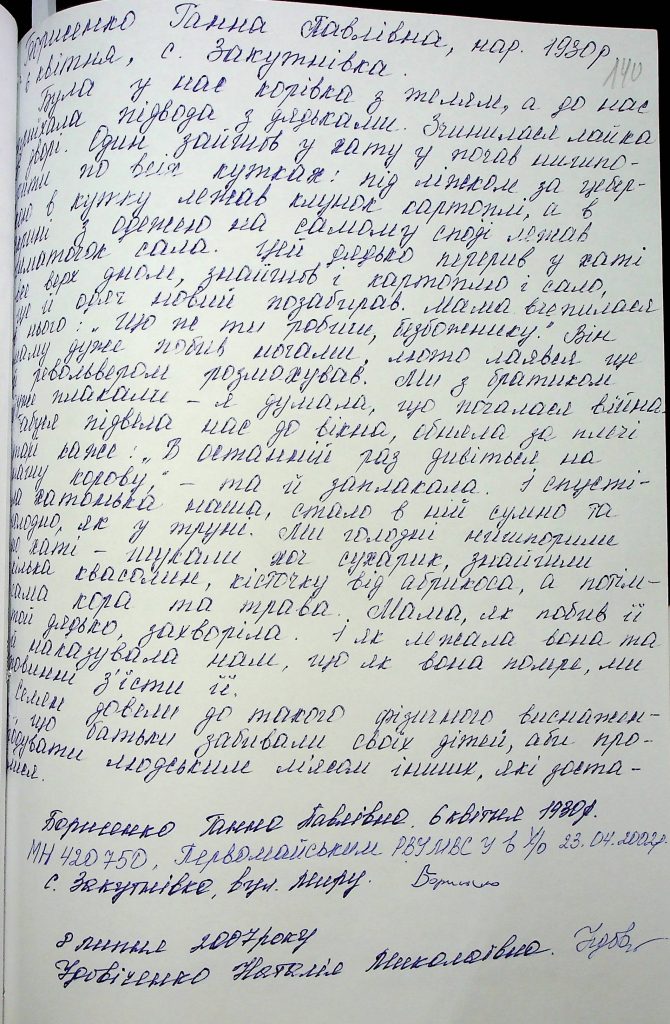 Борисенко Ганна Павлівна, нар. 1930р
6 квітня, с. Закутнівка.
140
Була у нас корівка з телям, а до нас
приїхала підвода з дядьками. Зчинилася лайка
дворі. Один зайшов у хату у почав нишпо-
рити по всіх кутках: під ліжком за цебер-
в кутку лежав клунок картоплі, а в
скрині з одежею на самому споді лежав
шматочок сала. Цей дядько перерив у хаті
все верх дном, знайшов і картоплю і сало,
ще й одяг новий позабирав. Мама вчепилася
в нього: „Що ж ти робиш, безбожнику." Він
маму дуже побив ногами, люто лаявся ще
й револьвером розмахував. Ми з братиком
дуже плакали – я думала, що почалася війна.
Бабуся підвела нас до вікна, обняла за плечі
тай каже: „В останній раз дивіться на
нашу корову," – та й заплакала. І спусті-
ла хатонька наша, стало в ній сумно та
холодно, як у труні. Ми голодні нишпорили
по хаті – шукали хоч сухарик, знайшли
кілька квасолин, кісточку від абрикоса, а потім-
сама кора та трава. Мама, як побив її
той дядько, захворіла. І як лежала вона та
й наказувала нам, що як вона помре, ми
повинні з'їсти її.
Селян довели до такого фізичного виснажен-
що батьки забивали своїх дітей, аби про-
годувати людським м'ясом інших, які зоста-
лися.
Борисенко Ганна Павлівна. 6 квітня 1930р.
МН 420750, Первомайським РВУМВС У в Х/о 23.04.2002р.
с. Закутнівка, вул. Миру.
8 липня 2007 року
Удовіченко Наталія Миколаївна.